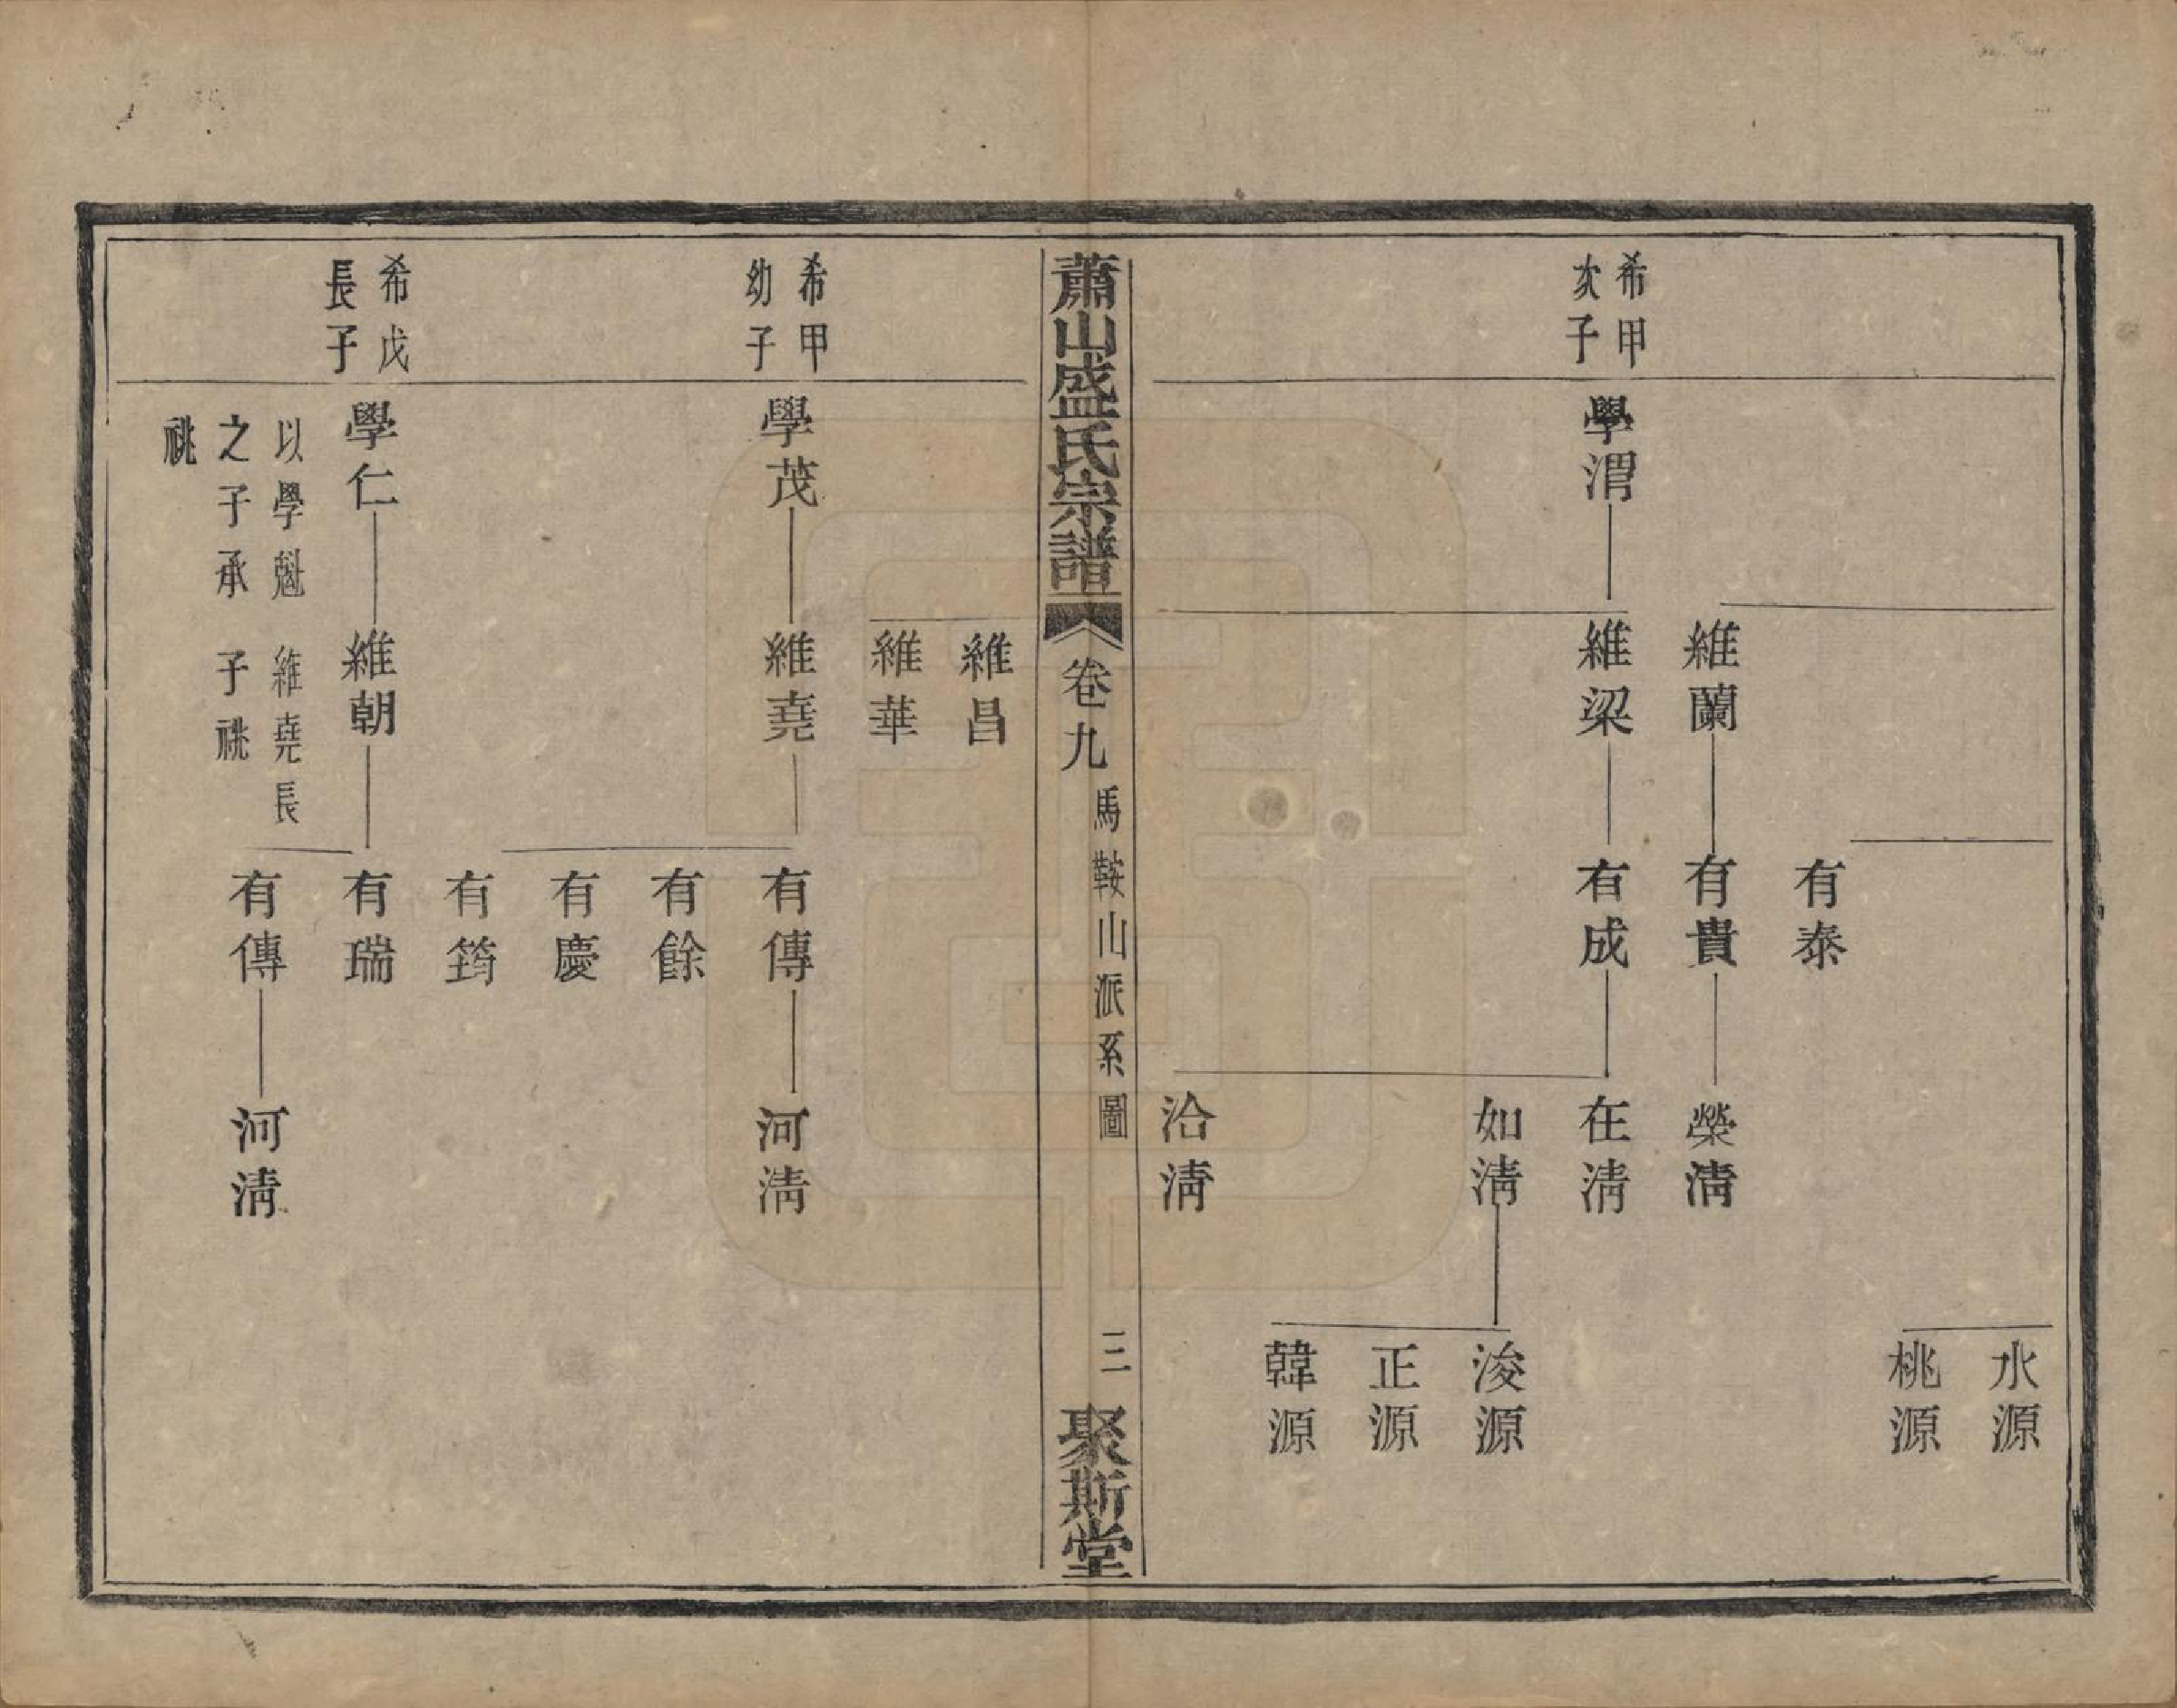 水源
桃源
有泰
維蘭
有貴
榮淸
希甲
次子
學渭
維梁
有成
在淸
如淸
浚源
正源
韓源
洽淸
蕭山盛氏宗譜
卷九
馬鞍山派系圖
三
聚斯堂
維昌
維華
希甲
幼子
學茂
維堯
有傳
河淸
有餘
有慶
有筠
希戊
長子
學仁
維朝
有瑞
以學
之子承
祧
維堯長
子祧
有傳
河淸